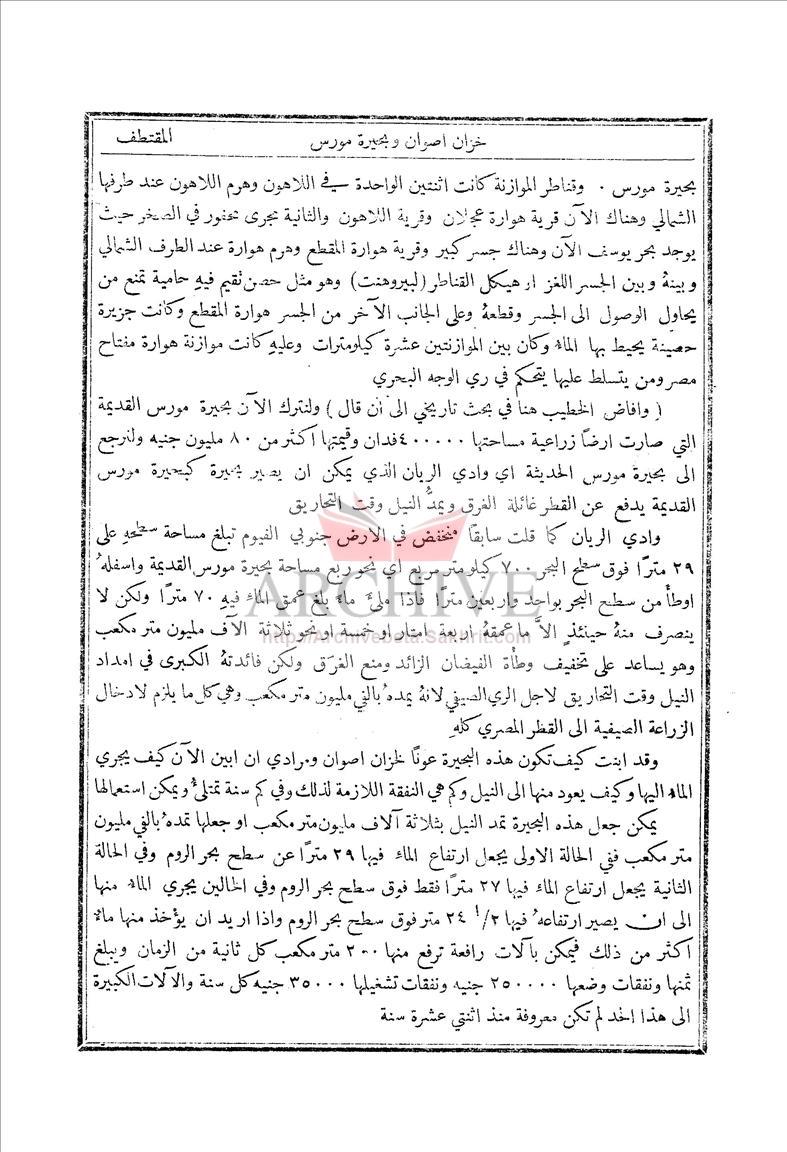 خزان اصوان وبحيرة مورس المقتطف
بحيرة مورس . وقناطر الموازنة كانت اثنتين الواحدة في اللاهون وهرم اللاهون عند طرفها
الشمالي وهناك الآن قرية هوارة عجلان وقرية اللاهون والثانية مجرى محفور في الصخر حيث
يوجد بحر يوسف الآن وهناك جسر كبير وقرية هوارة المقطع وهرم هوارة عند الطرف الشمالي
وبينهُ وبين الجسر اللغز ار هيكل القناطر (لبيروهنت) وهو مثل حصن تقيم فيهِ حامية تمنع من
يحاول الوصول الى الجسر وقطعهُ وعلى الجانب الآخر من الجسر هوارة المقطع وكانت جزيرة
حصينة يحيط بها الماء وكان بين الموازنتين عشرة كيلومترات وعليهِ كانت موازنة هوارة مفتاح
مصر ومن يتسلط عليها يتحكم في ري الوجه البحري
( وافاض الخطيب هنا في بحث تاريخي الى ان قال ) ولنترك الآن بحيرة مورس القديمة
التي صارت ارضاً زراعية مساحتها ٤٠٠٠٠٠ فدان وقيمتها اكثر من ٨٠ مليون جنيه ولنرجع
الى بحيرة مورس الحديثة اي وادي الريان الذي يمكن ان يصير بحيرة كبحيرة مورس
القديمة يدفع عن القطر غائلة الغرق ويمدُّ النيل وقت التحاريق
وادي الريان كما قلت سابقاً منخفض في الارض جنوبي الفيوم تبلغ مساحة سطحهِ على
٢٩ متراً فوق سطح البحر ٧٠٠ كيلو متر مربع اي نحو ربع مساحة بحيرة مورس القديمة واسفلهُ
اوطأ من سطح البحر بواحد واربعين متراً فاذا ملئ ماءً بلغ عمق الماء فيهِ ٧٠ متراً ولكن لا
ينصرف منهُ حينئذٍ الاَّ ما عمقهُ اربعة امتار او خمسة او نحو ثلاثة الاف مليون متر مكعب
وهو يساعد على تخفيف وطأة الفيضان الزائد ومنع الغرق ولكن فائدتهُ الكبرى في امداد
النيل وقت التحاريق لاجل الري الصيفي لانهُ يمده بالفي مليون متر مكعب وهي كل ما يلزم لادخال
الزراعة الصيفية الى القطر المصري كلهِ
وقد ابنت كيف تكون هذه البحيرة عوناً لخزان اصوان ومرادي ان ابين الآن كيف يجري
الماء اليها وكيف يعود منها الى النيل وكم هي النفقة اللازمة لذلك وفي كم سنة تمتلئ ويمكن استعمالها
يمكن جعل هذه البحيرة تمد النيل بثلاثة آلاف مليون متر مكعب او جعلها تمده بالفي مليون
متر مكعب ففي الحالة الاولى يجعل ارتفاع الماء فيها ٢٩ متراً عن سطح بحر الروم وفي الحالة
الثانية يجعل ارتفاع الماء فيها ٢٧ متراً فقط فوق سطح بحر الروم وفي الحالين يجري الماء منها
الى ان يصير ارتفاعهُ فيها ١/٢ ٢٤ متر فوق سطح بحر الروم واذا اريد ان يؤخذ منها ماء
اكثر من ذلك فيمكن بآلات رافعة ترفع منها ٢٠٠ متر مكعب كل ثانية من الزمان ويبلغ
ثمنها ونفقات وضعها ٢٥٠٠٠٠ جنيه ونفقات تشغيلها ٣٥٠٠٠ جنيه كل سنة والآلات الكبيرة
الى هذا الحد لم تكن معروفة منذ اثنتي عشرة سنة
ARCHIVE
http://Archivebeta.Sakhrit.com